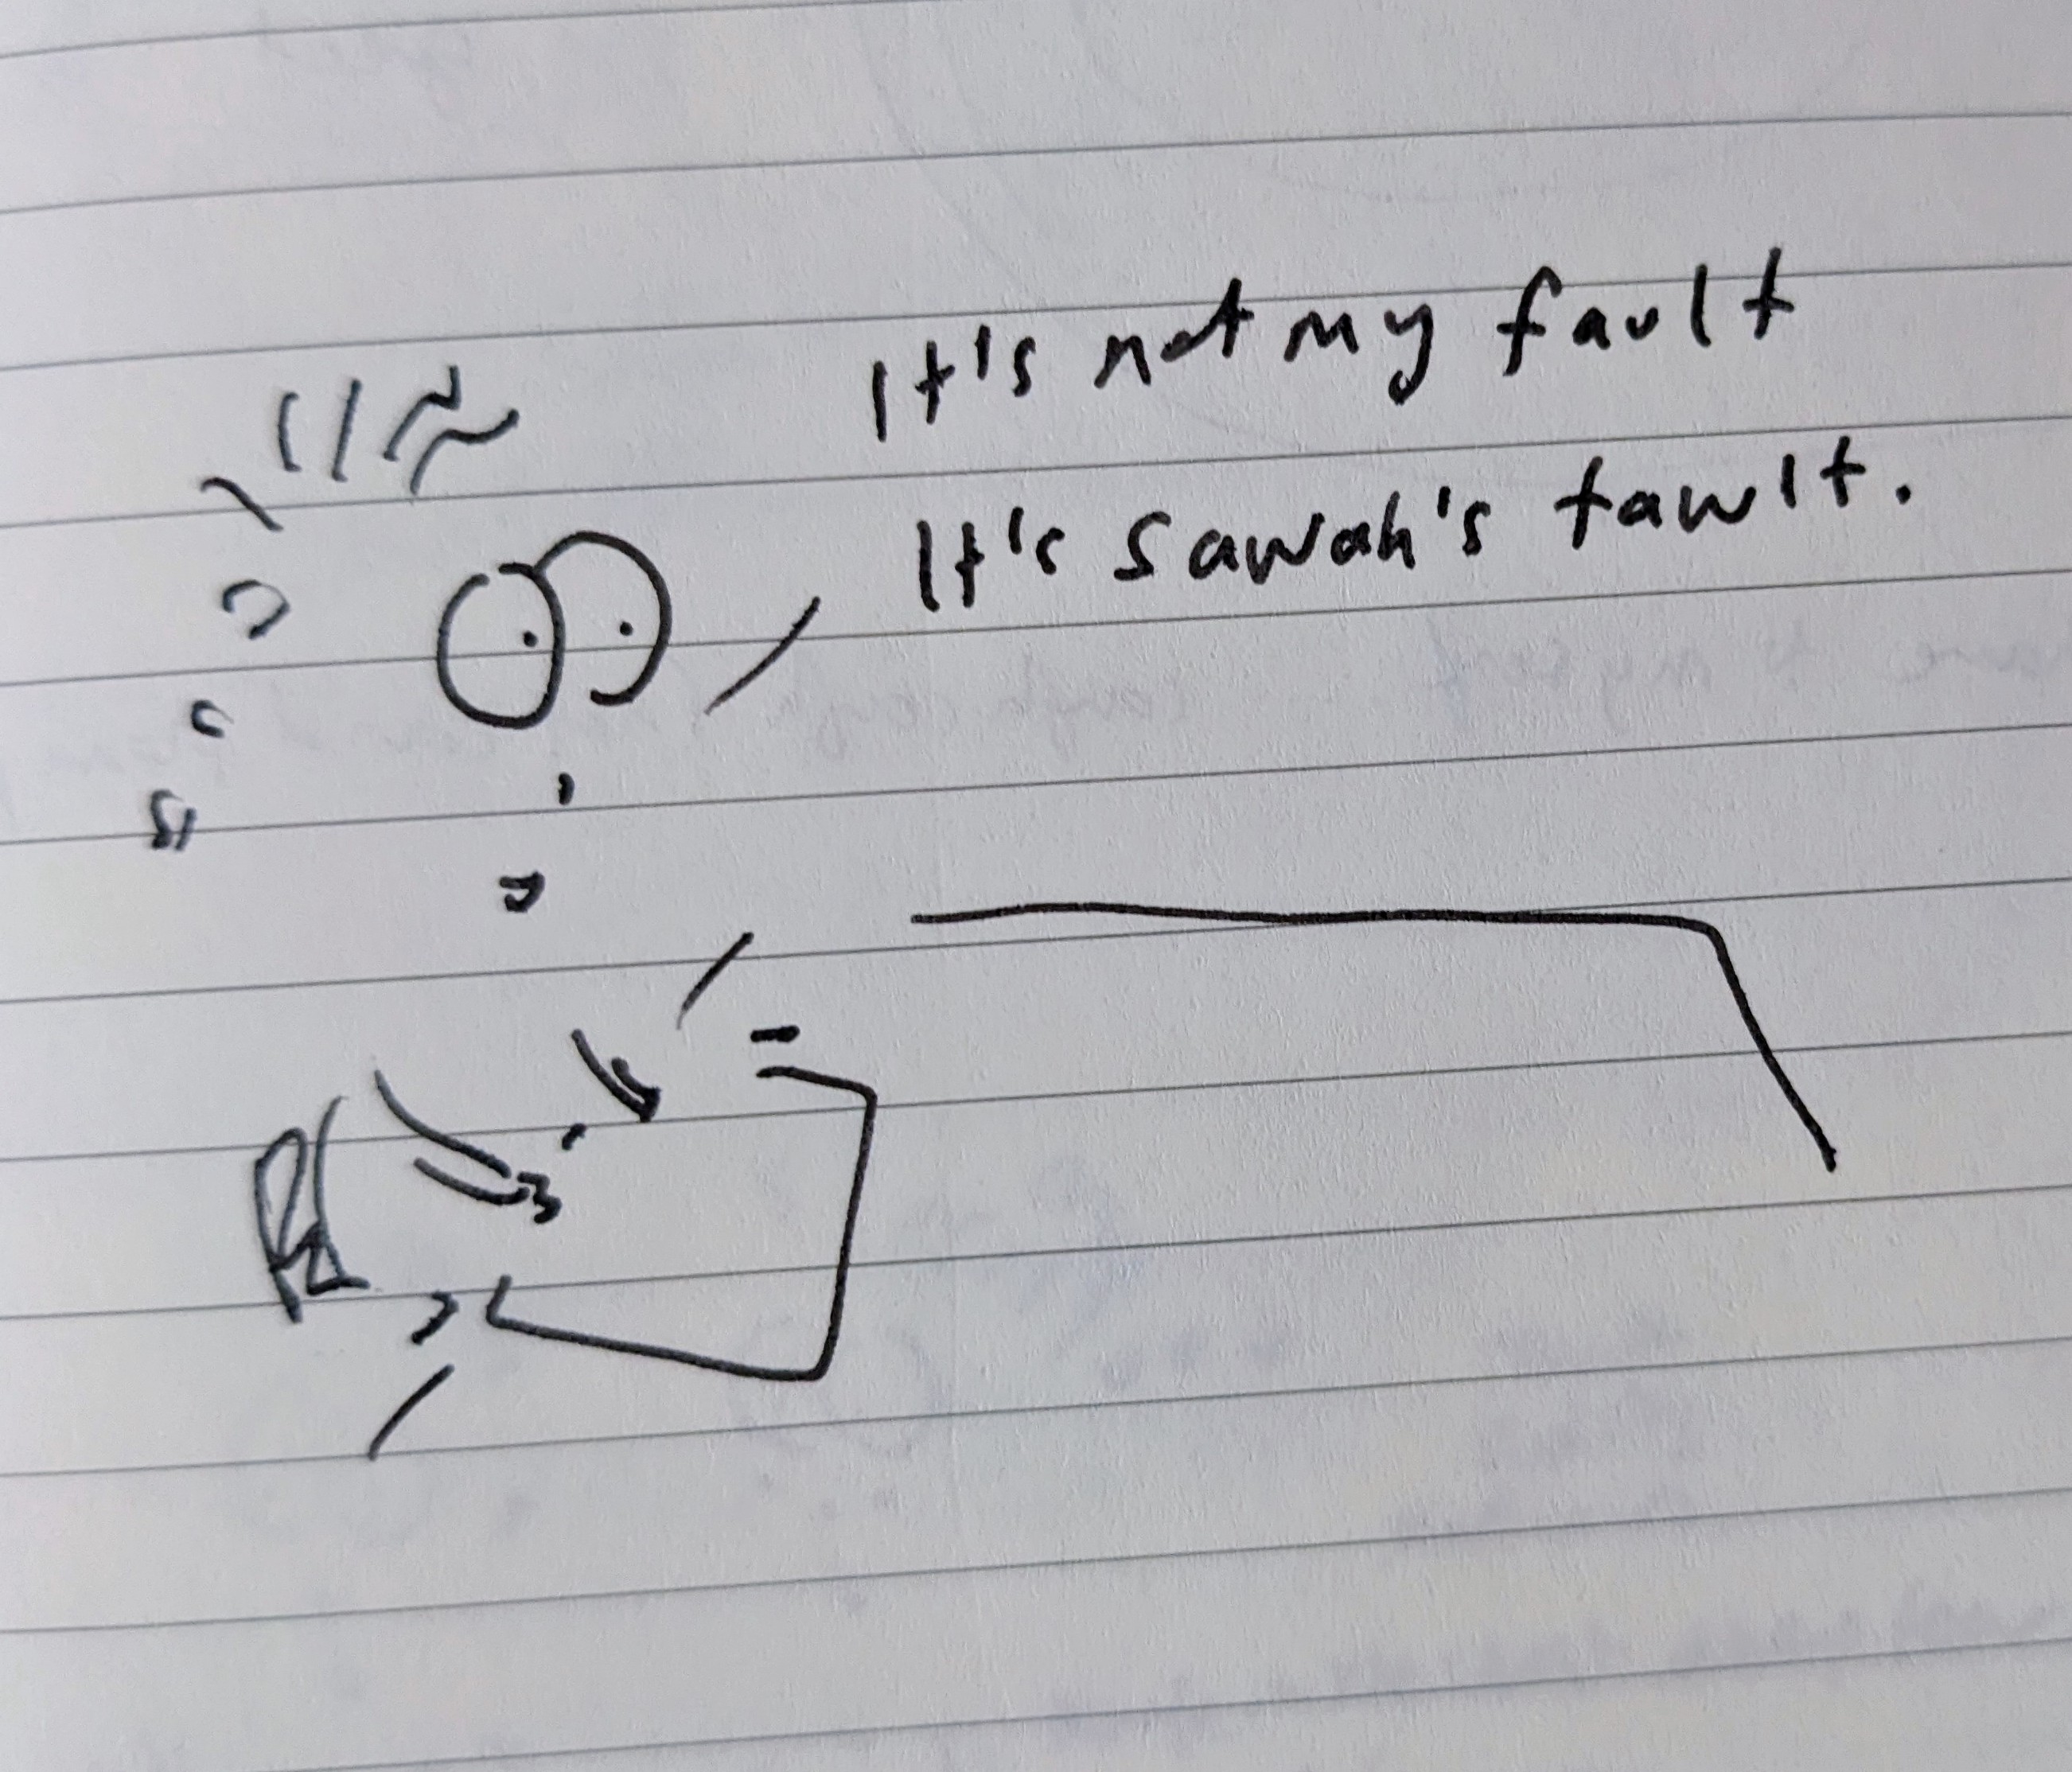 It's not my fault
It's sawah's fawlt.